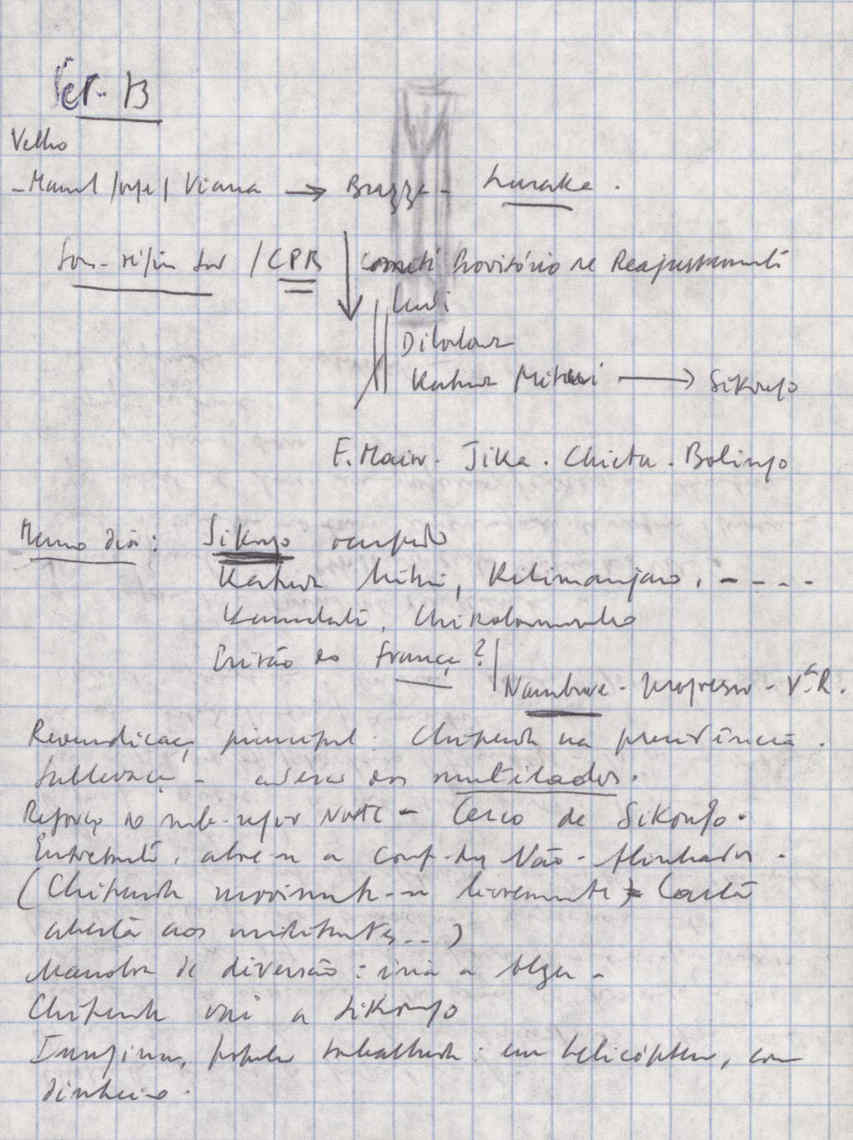 Set. B
Velho
- Manuel Jorge / Viana → Brazza - Lusaka.
Sub-região Sul / CPR | Comité Provisório de Reajustamento
Dilolwa
Katuwa Mitwi → Sikongo
F. Maior. Jika. Chieta. Bolingo
Mesmo dia: Sikongo ocupado
Katuwa Mitwi, Kilimanjaro, - - - -
Kamulati, Chikolomwenho
Prisão do França?
- professor - Vª R.
Reivindicação principal: Chipenda na presidência.
Sublevação - adesão dos mutilados.
Reforço do sub-região Norte - Cerco de Sikongo.
Entretanto, abre-se a Conf. dos Não-Alinhados -
(Chipenda movimenta-se livremente → Carta
aberta aos militantes...)
Manobra de diversão: iria a Alger -
Chipenda vai a Sikongo
Imagina, população trabalhada: em helicóptero, com
dinheiro.